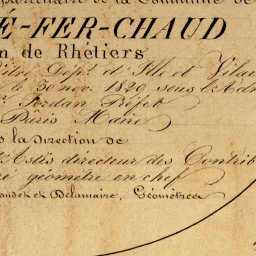 de la Commune de
É-FER-CHAUD
n de Rhétiers
Dépt d'Ille et Vilai
le 30 nov. 1829 sous l'Ad
Jordan Préfet
Pâris Maire
s la direction de
directeur des Contrib
ré géomètre en chef
et Delamaire, Géomètres